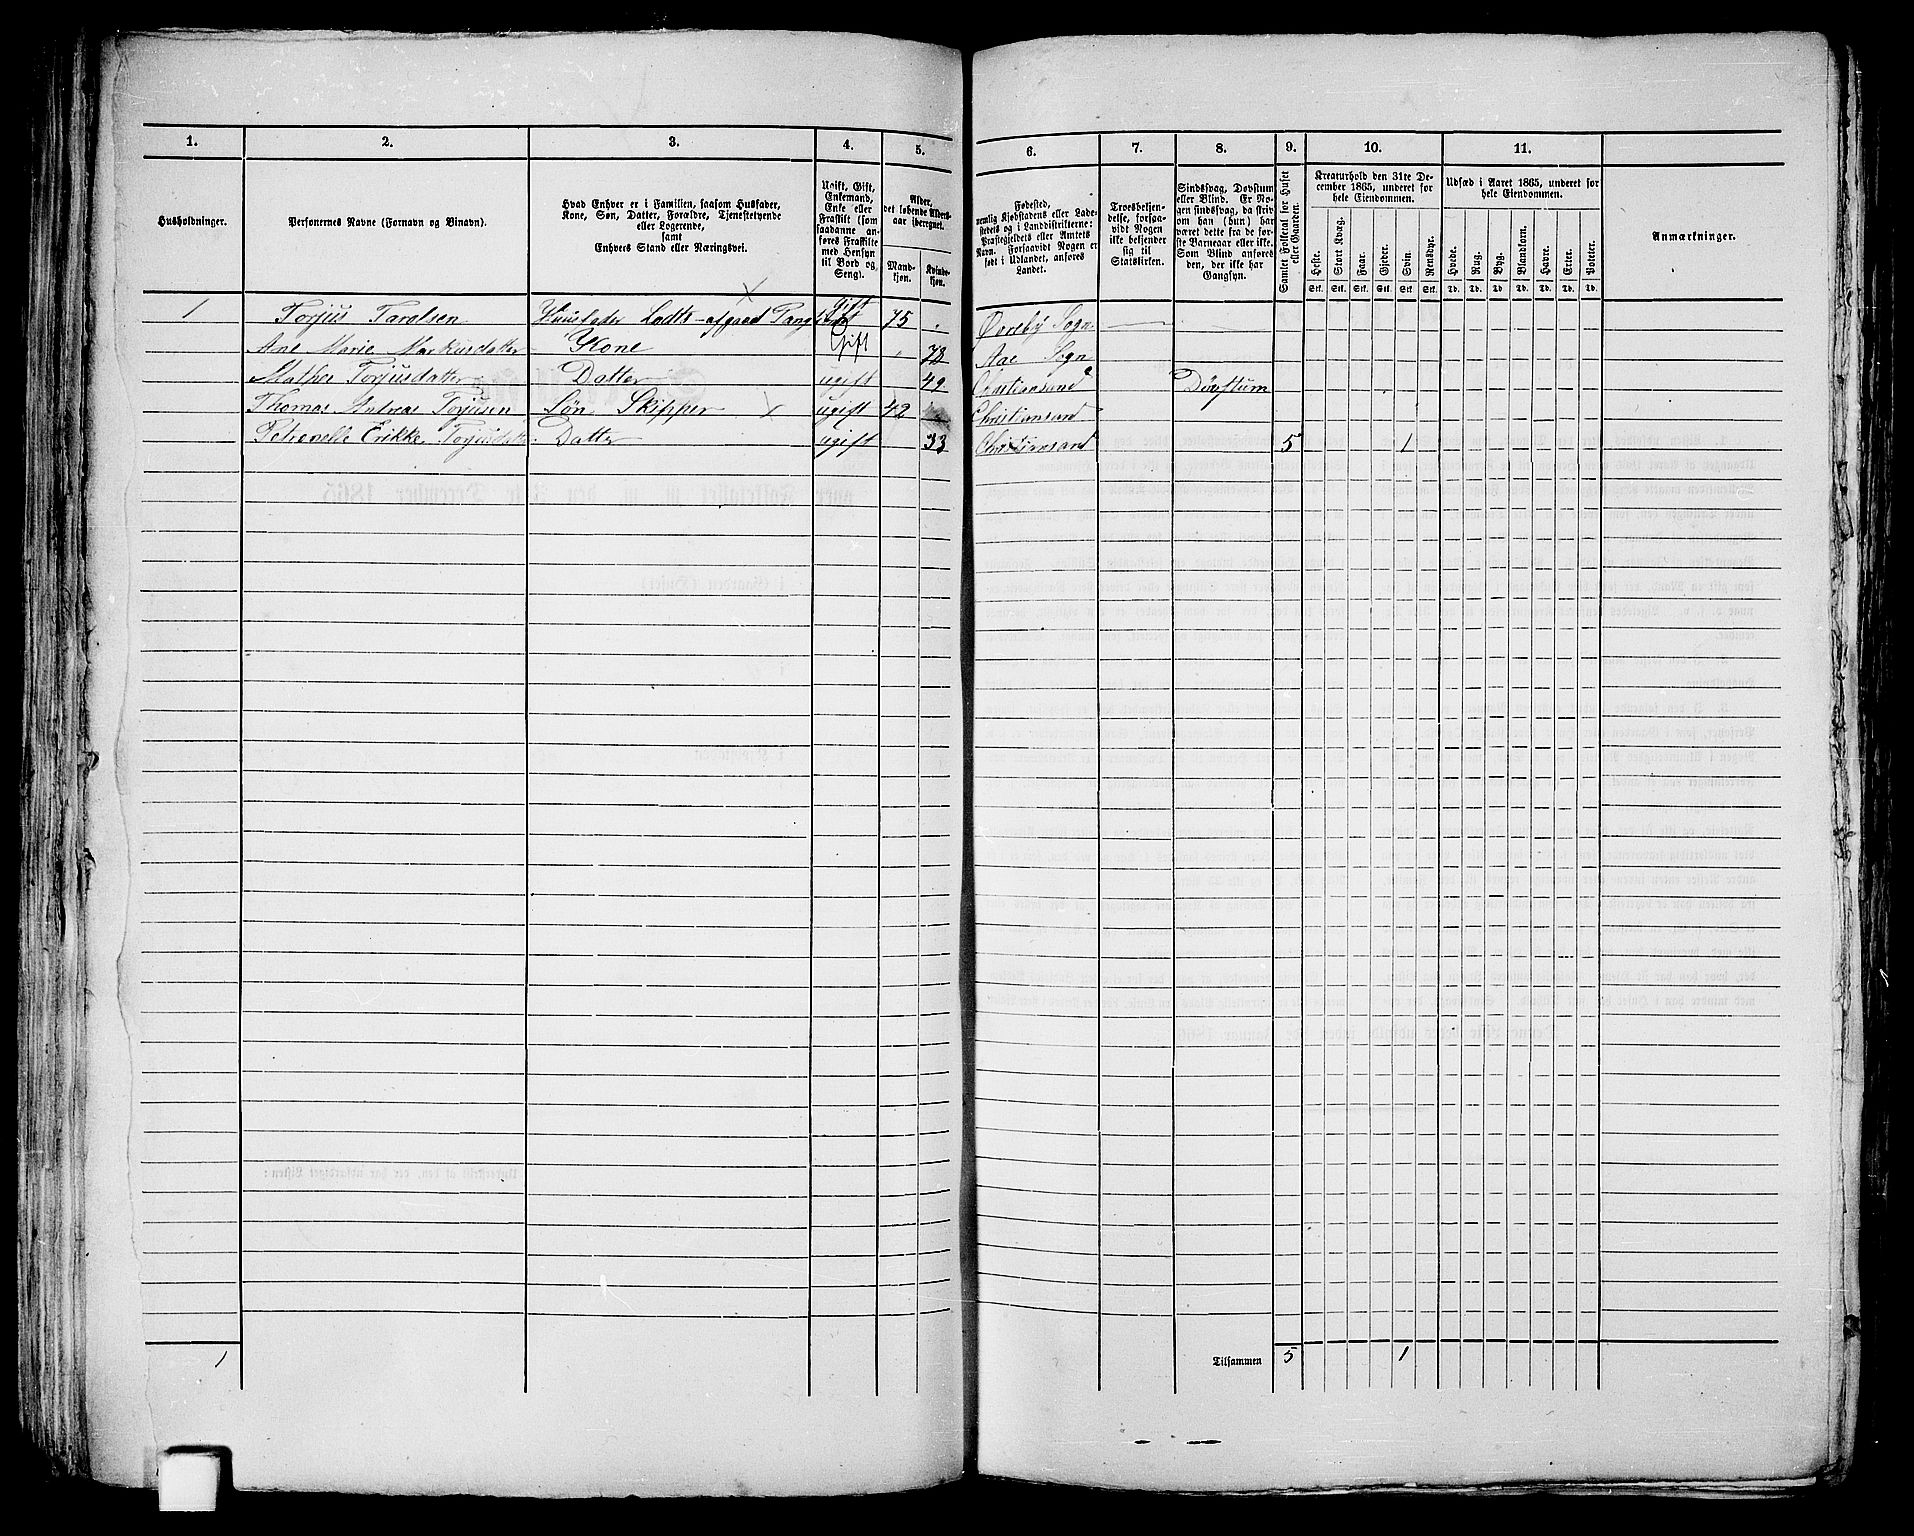 1. 2. 3. 4. 5. 6. 7. 8. 9. 10. 11.
Husholdninger.
Personernes Navne (Fornavn og Binavn).
Hvad Enhver er i Familien, saasom Husfader,
Kone, Søn, Datter, Forældre, Tjenestetyende
eller Logerende,
samt
Enhvers Stand eller Næringsvei.
Ugift, Gift,
Enkemand,
Enke eller
Fraskilt (som
saadanne an-
føres Fraskilte
med Hensyn
til Bord og
Seng).
Alder,
det løbende Alders-
aar iberegnet.
Mand-
kjøn.
Kvinde-
kjøn.
Fødested,
nemlig Kjøbstadens eller Lade-
stedets og i Landdistrikterne:
Præstegjeldets eller Amtets
Navn. Forsaavidt Nogen er
født i Udlandet, anføres
Landet.
Troesbekjen-
delse, forsaa-
vidt Nogen
ikke bekjender
sig til
Statskirken.
Sindssvag, Døvstum
eller Blind. Er No-
gen sindssvag, da skriv
om han (hun) har
været dette fra de før-
ste Barneaar eller ikke.
Som Blind anføres
den, der ikke har
Gangsyn.
Samlet Folketal for Huset
eller Gaarden.
Kreaturhold den 31te De-
cember 1865, underet for
hele Eiendommen.
Heste. Stort Kvæg. Faar. Gjeder. Svin. Rensdyr.
Stk. Stk. Stk. Stk. Stk. Stk.
Udsæd i Aaret 1865, underet for
hele Eiendommen.
Hvede. Rug. Byg. Blandkorn. Havre. Erter. Poteter.
Td. Td. Td. Td. Td. Td. Td.
Anmærkninger.
1 Torjus Tarolsen Huusfader Lodts-afgaaet Gift 75 Øvrebø Sogn
Ane Marie Markusdatter Kone Gift 78 Aae Sogn
Mathea Torjusdatter Datter ugift 49 Christiansand Døvstum
Thomas Andreas Torjusen Søn Skipper ugift 42 Christiansand
Petronelle Erikke Torjusdatter Datter ugift 33 Christiansand 5 1
1 Tilsammen 5 1